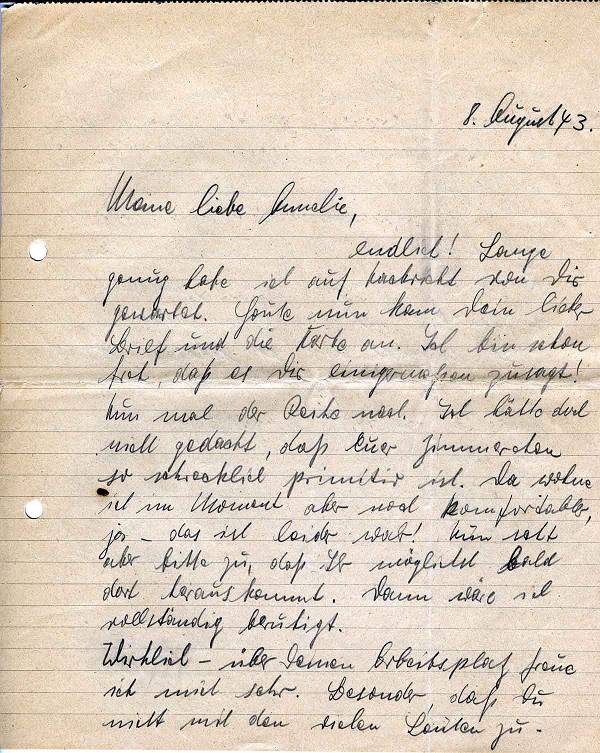 8. August 43.
Meine liebe Annelie,
endlich! Lange
genug habe ich auf Nachricht von Dir
gewartet. Heute nun kam Dein lieber
Brief und die Karte an. Ich bin schon
froh, daß es Dir einigermaßen zusagt!
Nun mal der Reihe nach. Ich hätte doch
nicht gedacht, daß Euer Zimmerchen
so schrecklich primitiv ist. Da wohne
ich im Moment aber noch komfortabler,
ja – das ist leider wahr! Nun seht
aber bitte zu, daß Ihr möglichst bald
dort herauskommt. Dann wäre ich
vollständig beruhigt.
Wirklich – über Deinen Arbeitsplatz freue
ich mich sehr. Besonder, daß Du
nicht mit den vielen Leuten zu-